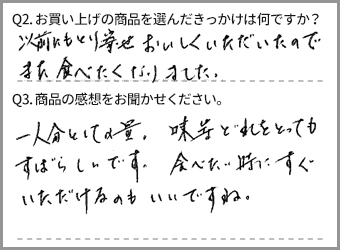 Q2.お買い上げの商品を選んだきっかけは何ですか？
以前にもとり寄せおいしくいただいたので
また食べたくなりました。
Q3.商品の感想をお聞かせください。
一人分としての量、味等どれをとっても
すばらしいです。食べたい時にすぐ
いただけるのもいいですね。